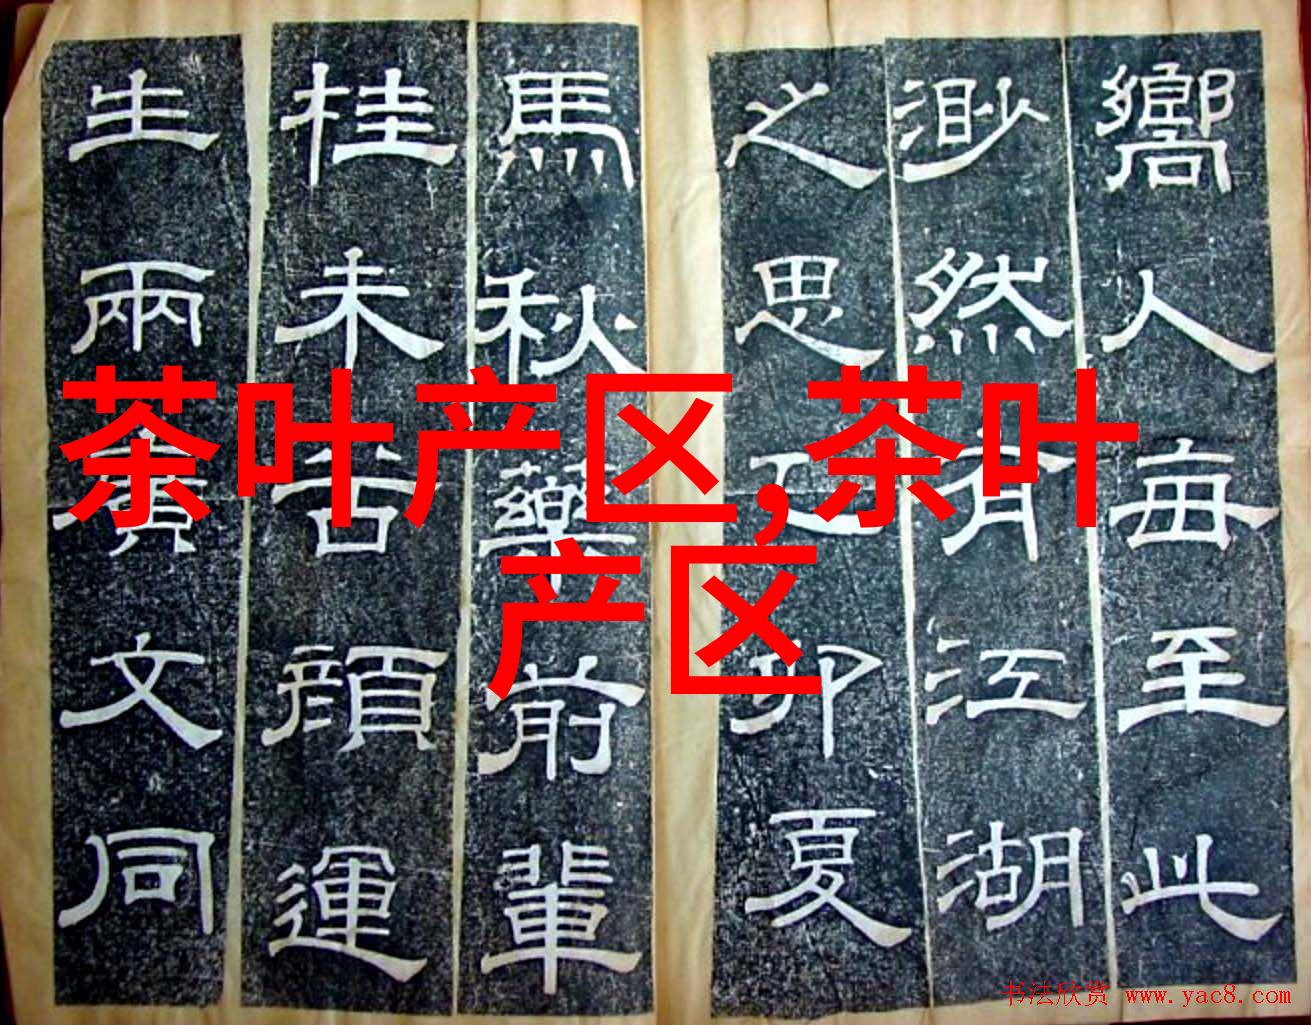 嚮人每至此
渺然有江湖
之思卯夏
馬秋藥前輩
桂未谷顏運
生兩廣文同
茶叶产区,茶叶
产区
书法欣赏 www.yac8.com